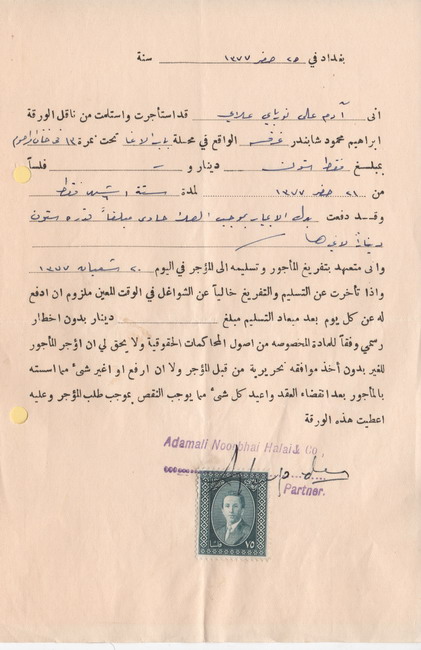 بغداد في ٢٥ صفر ١٣٧٧ سنة
انى آدم علي نوربهاي علاي قد استأجرت واستلمت من ناقل الورقة
ابراهيم محمود شابندر غرفة الواقع في محلة باب الاغا تحت نمرة ١٣ في خان
بمبلغ فقط ستون دينار و فلساً
من ٢١ صفر ١٣٧٧ لمدة ستة اشهر فقط
وقد دفعت بدل الايجار بموجب الصك مبلغاً قدره ستون
ديناراً لا غيرها
وانى متعهد بتفريغ المأجور وتسليمه الى المؤجر في اليوم ٢٠ شعبان ١٣٧٧
واذا تأخرت عن التسليم والتفريغ خالياً عن الشواغل في الوقت المعين ملزوم ان ادفع
له عن كل يوم بعد ميعاد التسليم مبلغ دينار بدون اخطار
رسمي وفقاً للمادة المخصوصه من اصول المحاكمات الحقوقية ولا يحق لي ان اؤجر المأجور
للغير بدون أخذ موافقه تحريرية من قبل المؤجر ولا ان ارفع او اغير شئ مما اسسته
بالمأجور بعد انقضاء العقد واعيد كل شئ مما يوجب النقص بموجب طلب المؤجر وعليه
اعطيت هذه الورقة
Adamali Noorbhai Halai & Co.
Partner.
٧٥ فلسا